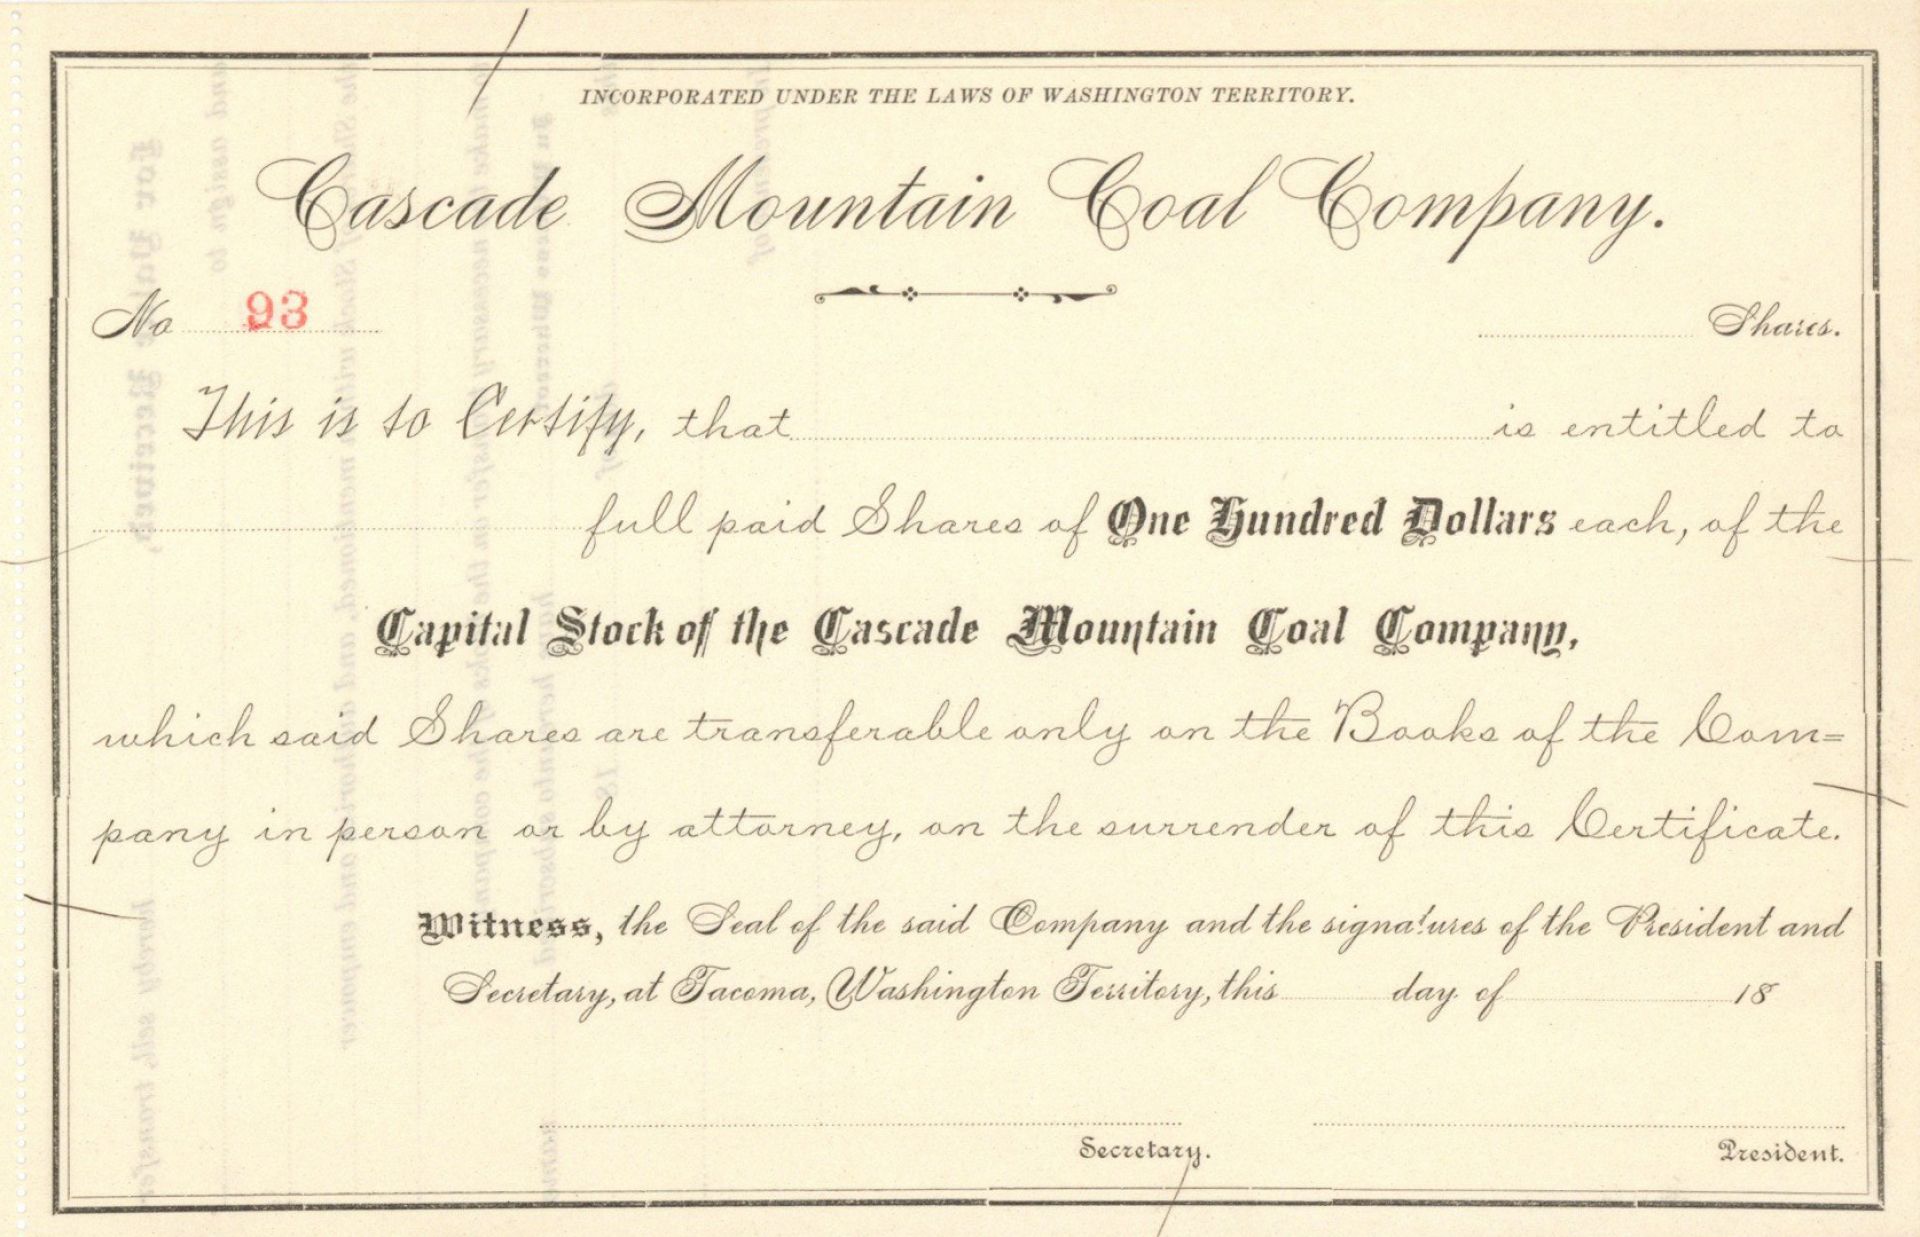 INCORPORATED UNDER THE LAWS OF WASHINGTON TERRITORY.
Cascade Mountain Coal Company.
No 93 Shares.
This is to Certify, that is entitled to
full paid Shares of One Hundred Dollars each, of the
Capital Stock of the Cascade Mountain Coal Company,
which said Shares are transferable only on the Books of the Com=
pany in person or by attorney, on the surrender of this Certificate.
Witness, the Seal of the said Company and the signatures of the President and
Secretary, at Tacoma, Washington Territory, this day of 18
Secretary. President.